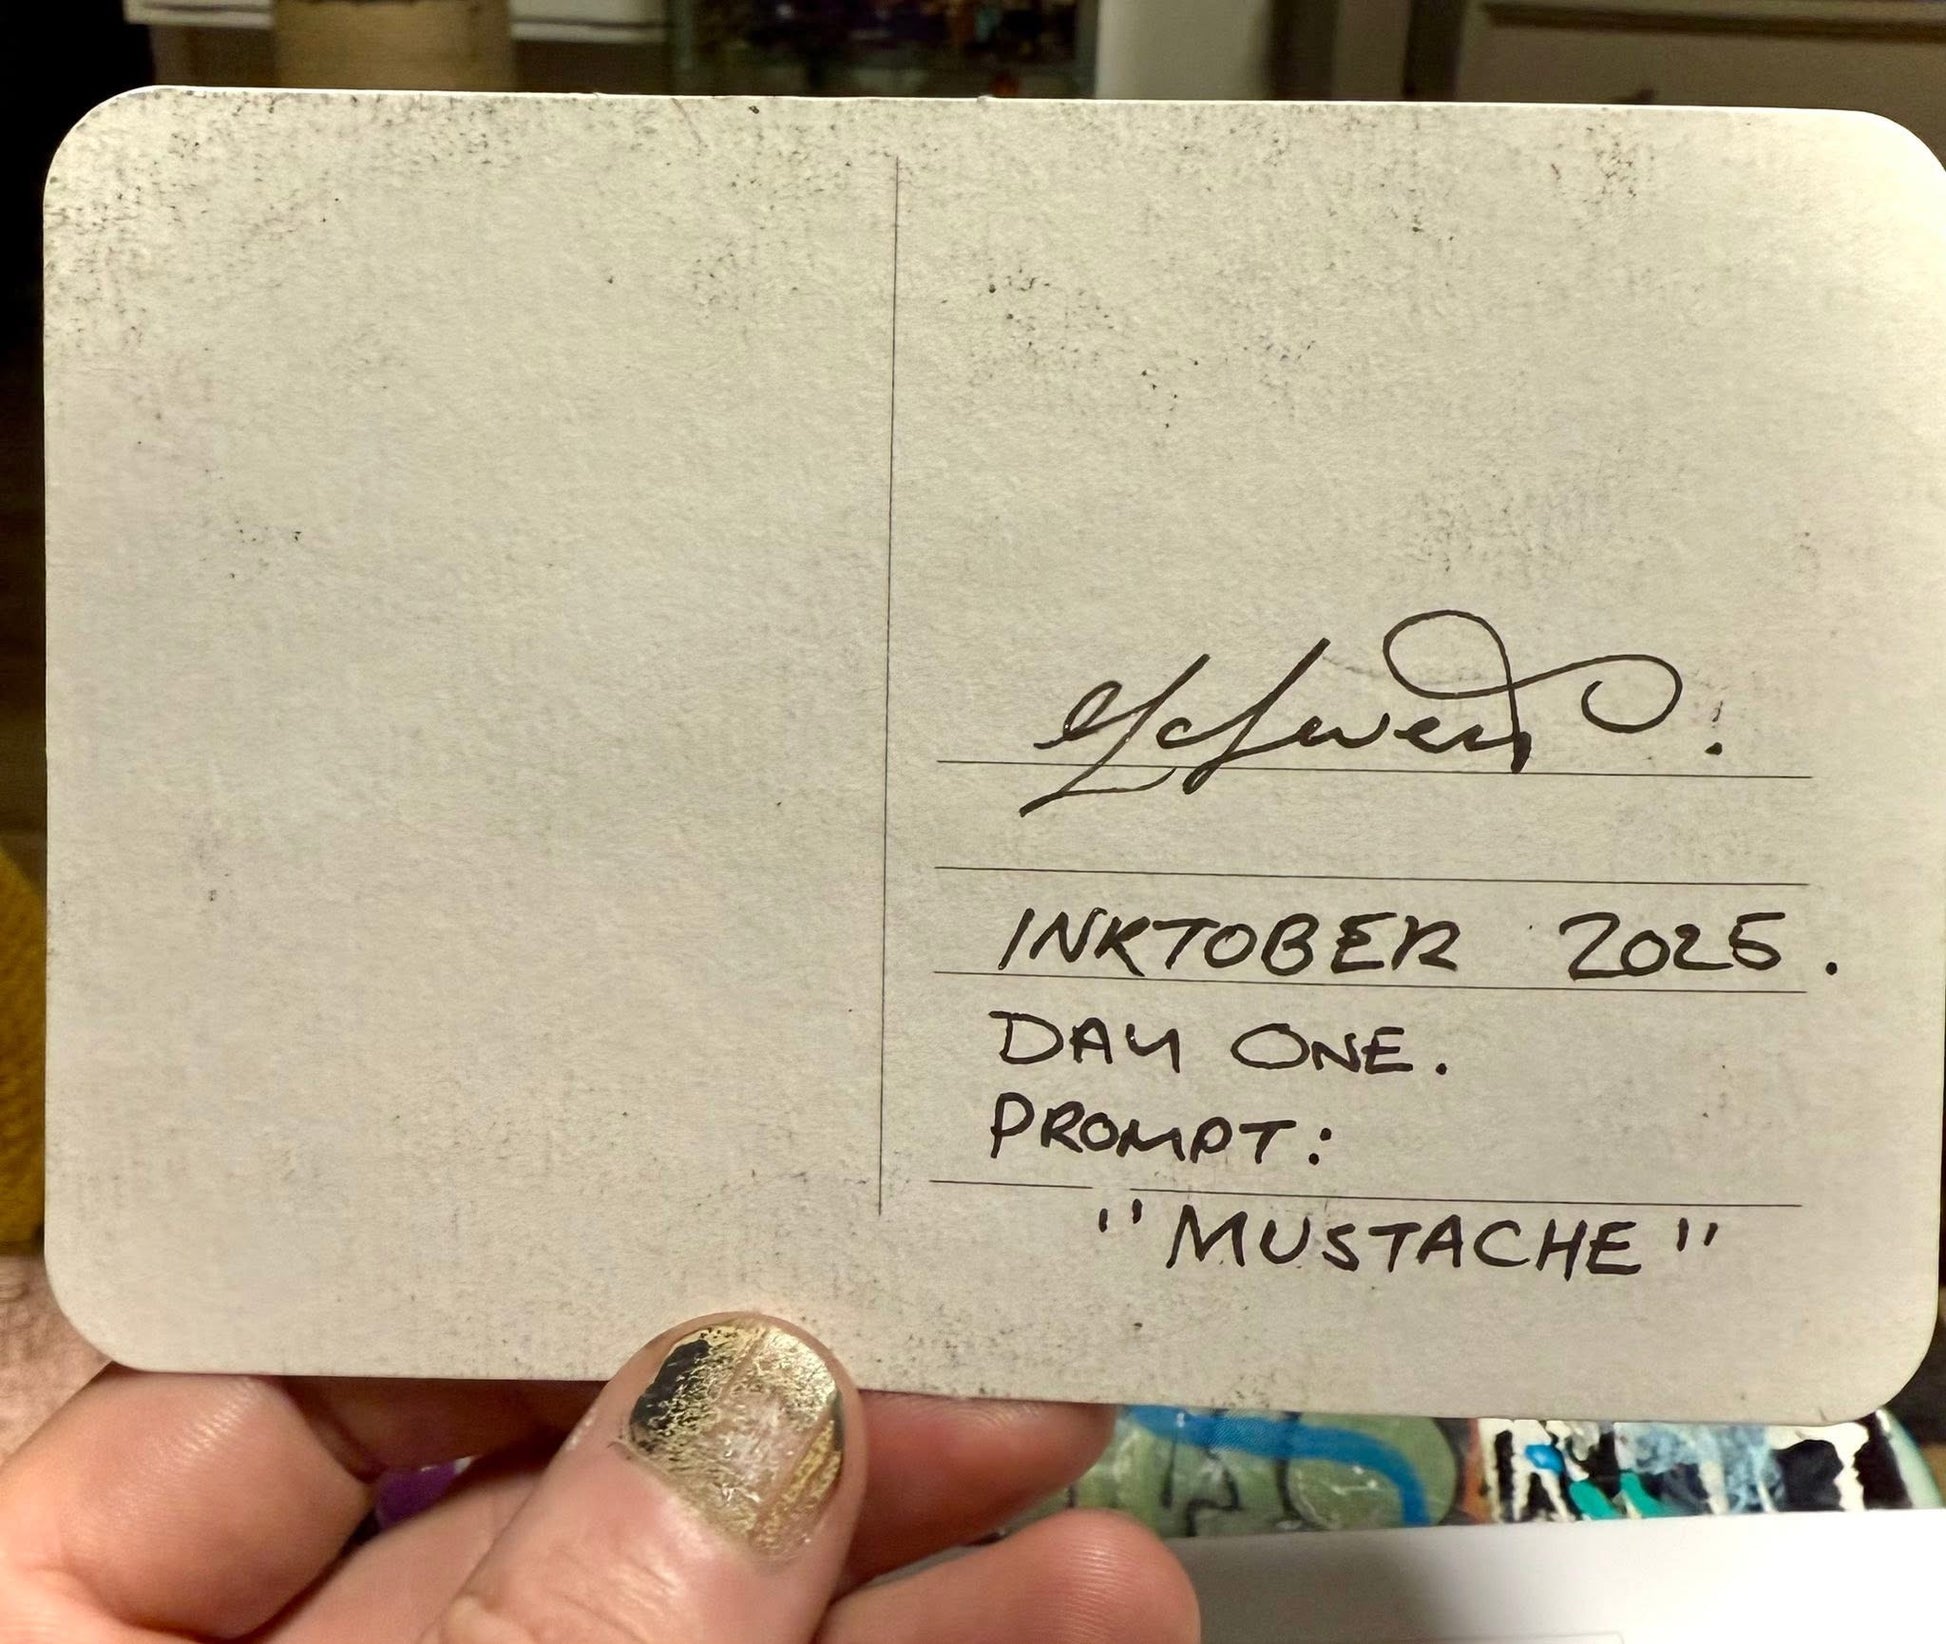 INKTOBER 2025.
DAY ONE.
PROMPT:
"MUSTACHE"